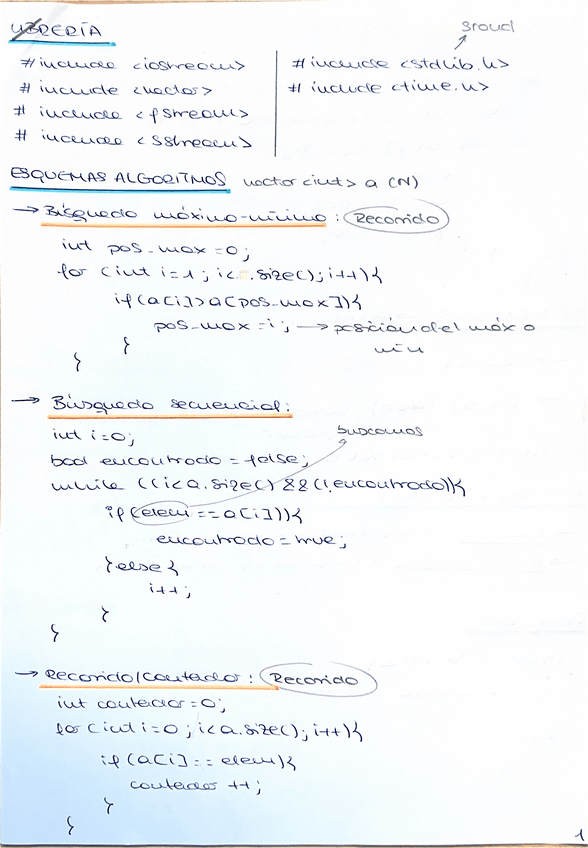 LIBRERÍA
srand
#include <iostream>
#include <vector>
#include <fstream>
#include <sstream>
#include <stdlib.h>
#include <time.h>
ESQUEMAS ALGORITMOS vector<int> a (N)
→ Búsqueda máximo-mínimo: Recorrido
int pos_max = 0;
for (int i=1; i< .size(); i++){
if(a[i]>a[pos_max]){
pos_max = i; → posición del máx o
mín
}
}
→ Búsqueda secuencial:
buscamos
int i=0;
bool encontrado = false;
while ((i<a.size() &&(!encontrado)){
if(elem == a[i])){
encontrado = true;
}else{
i++;
}
}
→ Recorrido/Contador: Recorrido
int contador = 0;
for (int i=0; i<a.size(); i++){
if(a[i] == elem){
contador ++;
}
}
1